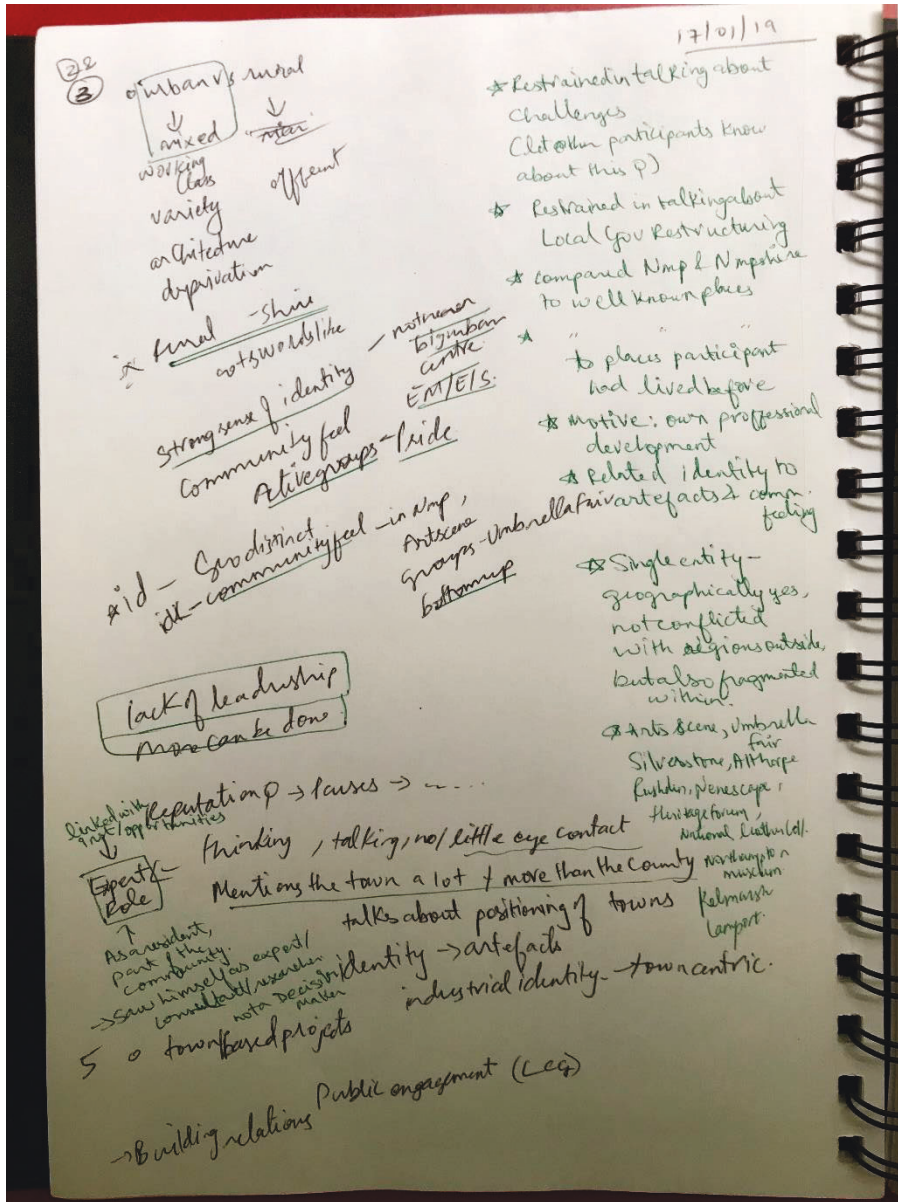 17/01/19
22
3
urban vs rural
↓ ↓
mixed
working
class
variety affluent
architecture
deprivation
* Rural - Shire
not swords like
strong sense of identity - not near a
big urban
centre
EM/E/S.
Community feel
Active groups - Pride
* id - Geo distinct
idt - community feel - in Nmp,
Art scene
groups - Umbrella Fair
bottom up
lack of leadership
more can be done.
Reputation → Pauses → .....
linked with
/opportunities
↓
thinking, talking, no/little eye contact
Expert/
Role
Mentions the town a lot & more than the county
talks about positioning of towns
↑
As a resident,
part of the
community.
→ Saw himself as expert/
consultant/researcher
not a decision
maker
identity → artefacts
industrial identity - town centric.
5 o town/based projects
Public engagement (Leg)
→ Building relations
* Restrained in talking about
challenges
(let other participants know
about this Q)
* Restrained in talking about
Local Gov Restructuring
* compared Nmp & Nmpshire
to well known places
* " " "
to places participant
had lived before
* Motive: own proffessional
development
* Related identity to
artefacts & comm.
feeling
* Single entity -
geographically yes,
not conflicted
with regions outside,
but also fragmented
within.
* Arts Scene, Umbrella
fair
Silverstone, Althorpe
Rushden, Nenescape,
Heritage forum,
National Leather Coll.
Northampton
museum
Kelmarsh
Lamport.